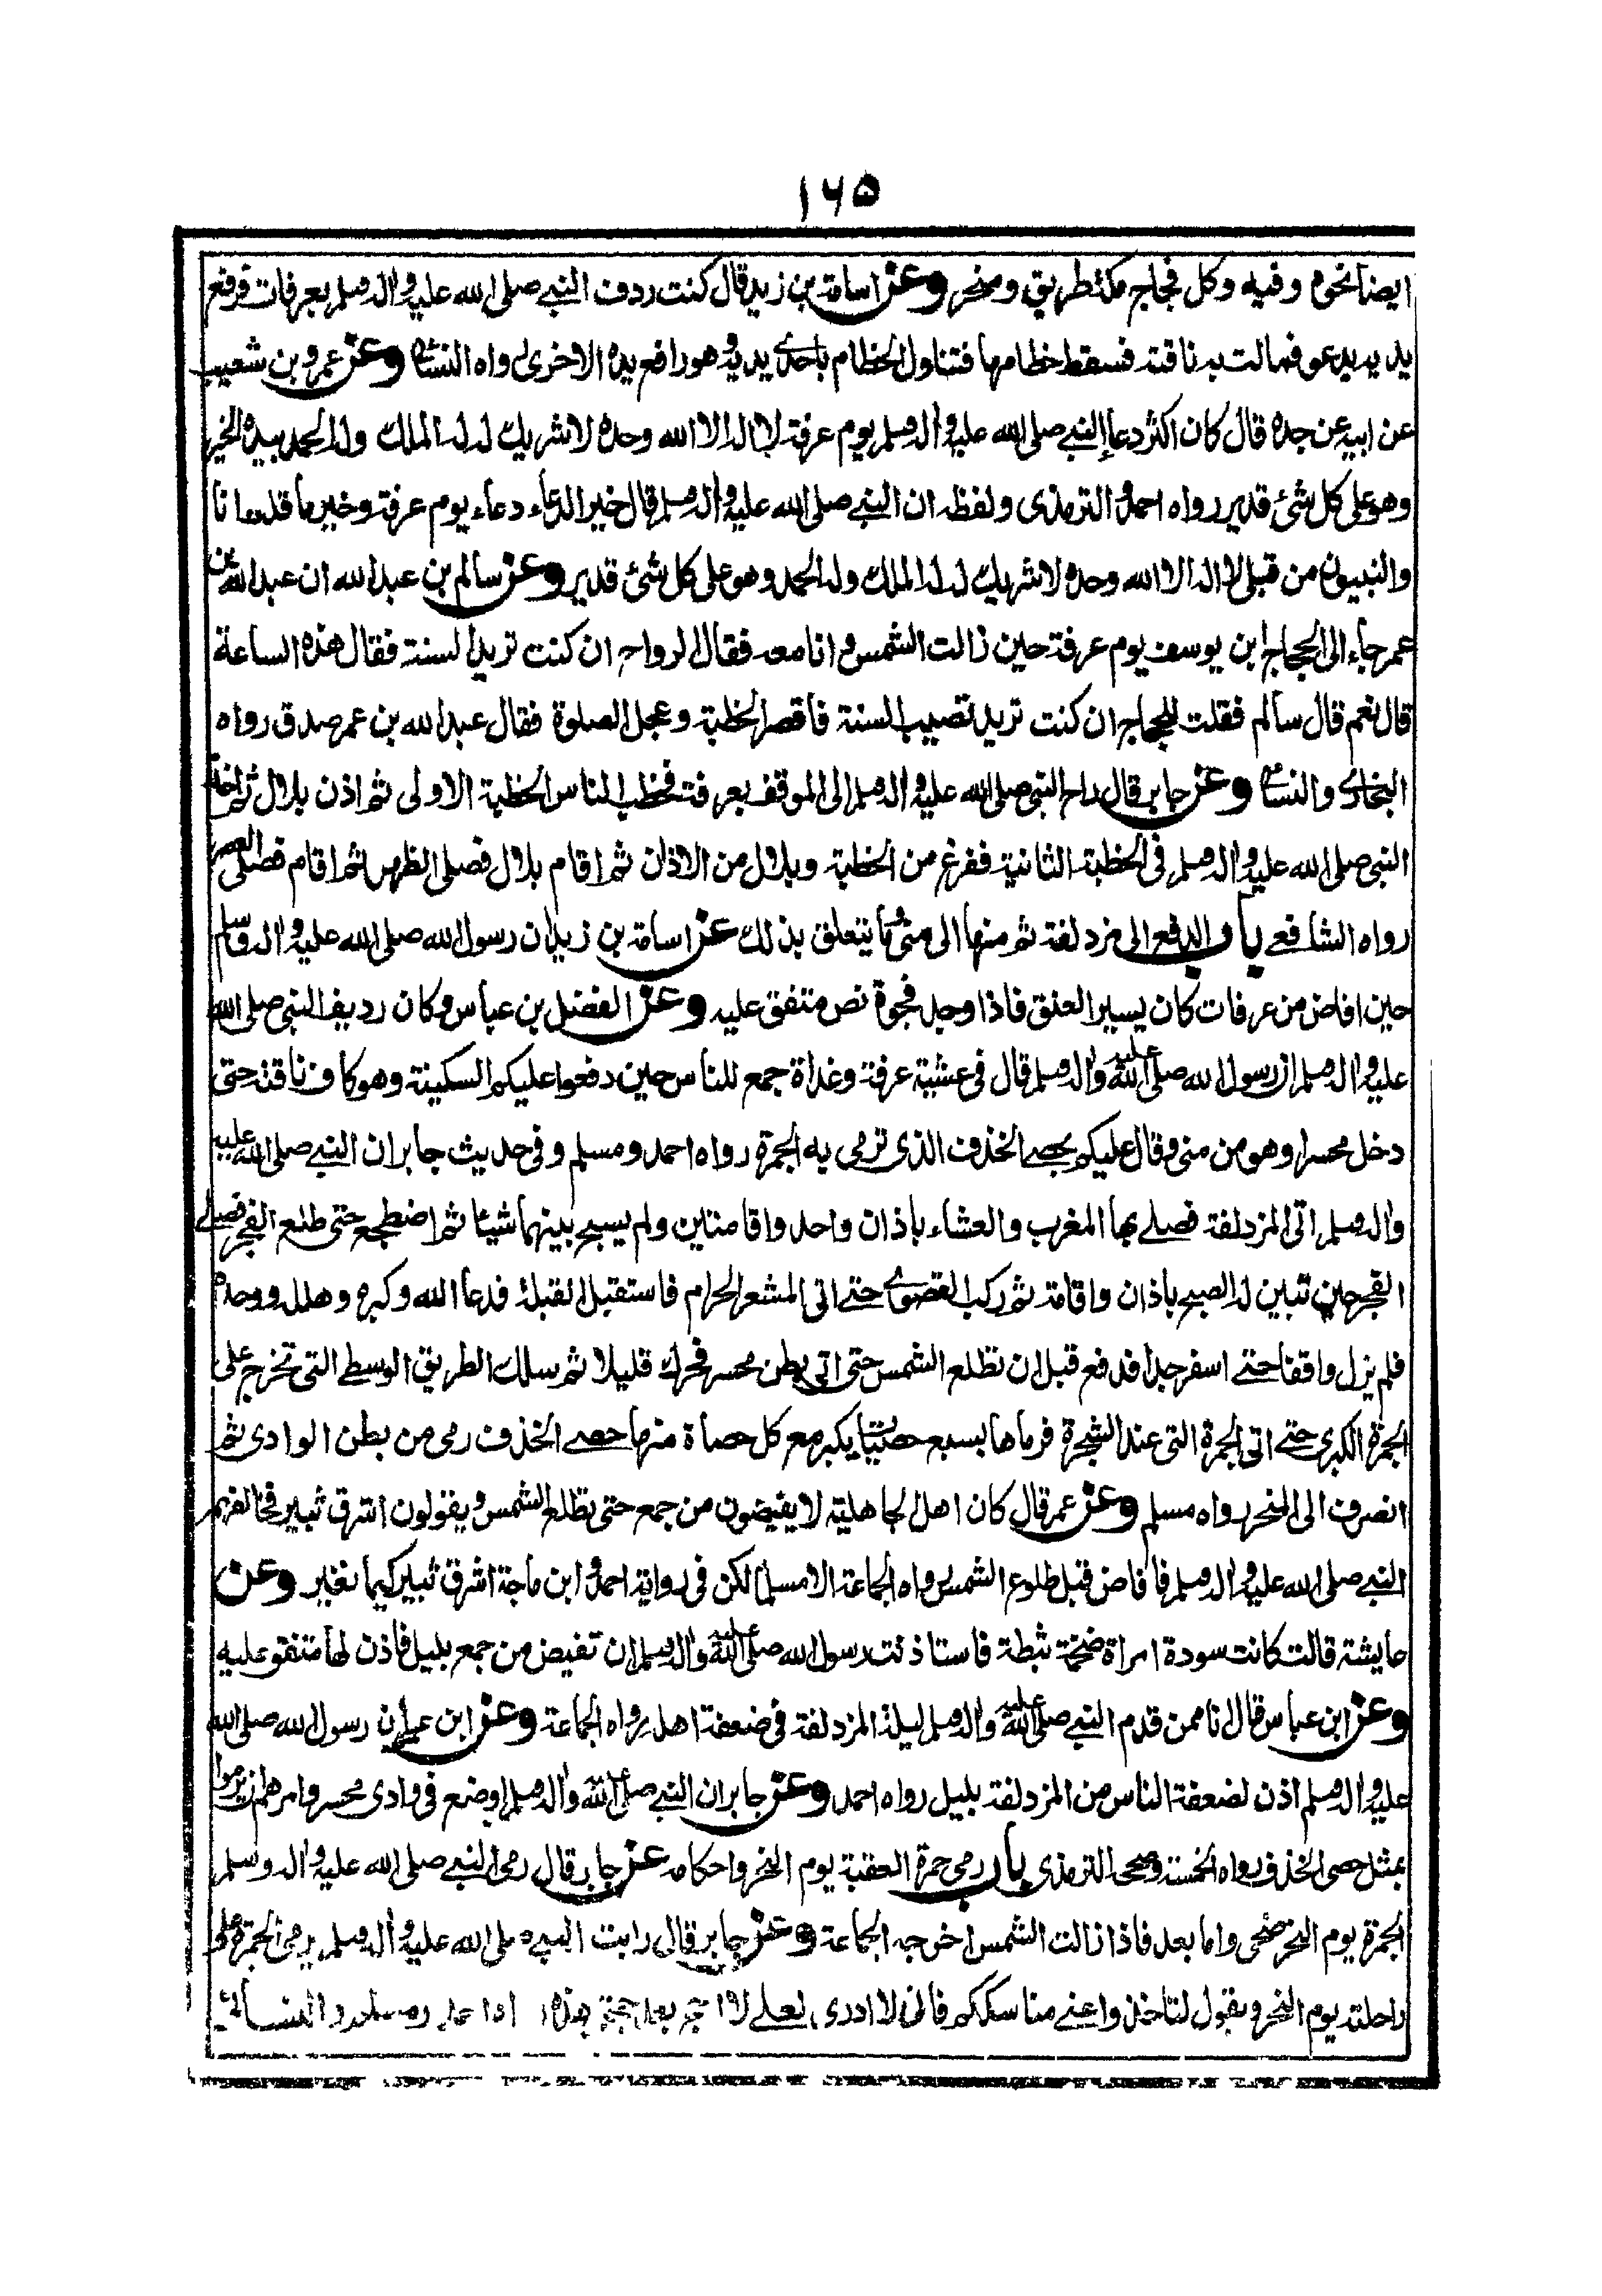 ١٦٥
ايضا نحوه وفيه وكل فجاج مكة طريق ومنحر وعن اسامة بن زيد قال كنت ردف النبي صلى الله عليه واله وسلم بعرفات فرفع
يديه يدعو فمالت به ناقته فسقط خطامها فتناول الخطام باحدى يديه وهو رافع يده الاخرى رواه النسائي وعن عمرو بن شعيب
عن ابيه عن جده قال كان اكثر دعاء النبي صلى الله عليه واله وسلم يوم عرفة لا اله الا الله وحده لا شريك له له الملك وله الحمد بيده الخير
وهو على كل شئ قدير رواه احمد والترمذى ولفظه ان النبي صلى الله عليه واله وسلم قال خير الدعاء دعاء يوم عرفة وخير ما قلت انا
والنبيون من قبلى لا اله الا الله وحده لا شريك له له الملك وله الحمد وهو على كل شئ قدير وعن سالم بن عبد الله ان عبد الله بن
عمر جاء الى الحجاج ابن يوسف يوم عرفة حين زالت الشمس وانا معه فقال الرواح ان كنت تريد السنة فقال هذه الساعة
قال نعم قال سالم فقلت للحجاج ان كنت تريد تصيب السنة فاقصر الخطبة وعجل الصلوة فقال عبد الله بن عمر صدق رواه
البخارى والنسائي وعن جابر قال راح النبي صلى الله عليه واله وسلم الى الموقف بعرفة فخطب الناس الخطبة الاولى ثم اذن بلال ثم اخذ
النبي صلى الله عليه واله وسلم فى الخطبة الثانية ففرغ من الخطبة وبلال من الاذان ثم اقام بلال فصلى الظهر ثم اقام فصلى العصر
رواه الشافعي باب الدفع الى مزدلفة ثم منها الى منى وما يتعلق بذلك عن اسامة بن زيد ان رسول الله صلى الله عليه واله وسلم
حين افاض من عرفات كان يسير العنق فاذا وجد فجوة نص متفق عليه وعن الفضل بن عباس وكان رديف النبي صلى الله
عليه واله وسلم ان رسول الله صلى الله عليه واله وسلم قال فى عشية عرفة وغداة جمع للناس حين دفعوا عليكم السكينة وهو كاف ناقته حتى
دخل محسرا وهو من منى وقال عليكم بحصى الخذف الذى ترمى به الجمرة رواه احمد ومسلم وفى حديث جابر ان النبي صلى الله عليه
واله وسلم اتى المزدلفة فصلى بها المغرب والعشاء باذان واحد واقامتين ولم يسبح بينهما شيئا ثم اضطجع حتى طلع الفجر فصلى
الفجر حين تبين له الصبح باذان واقامة ثم ركب القصوى حتى اتى المشعر الحرام فاستقبل القبلة فدعا الله وكبره وهلله ووحده
فلم يزل واقفا حتى اسفر جدا فدفع قبل ان تطلع الشمس حتى اتى بطن محسر فحرك قليلا ثم سلك الطريق الوسطى التى تخرج على
الجمرة الكبرى حتى اتى الجمرة التى عند الشجرة فرماها بسبع حصيات يكبر مع كل حصاة منها حصى الخذف رمى من بطن الوادى ثم
انصرف الى المنحر رواه مسلم وعن عمر قال كان اهل الجاهلية لا يفيضون من جمع حتى تطلع الشمس ويقولون اشرق ثبير فخالفهم
النبي صلى الله عليه واله وسلم فافاض قبل طلوع الشمس رواه الجماعة الا مسلما لكن فى رواية احمد وابن ماجة اشرق ثبير كيما نغير وعن
عايشة قالت كانت سودة امراة ضخمة ثبطة فاستاذنت رسول الله صلى الله عليه واله وسلم ان تفيض من جمع بليل فاذن لها متفق عليه
وعن ابن عباس قال انا ممن قدم النبي صلى الله عليه واله وسلم ليلة المزدلفة فى ضعفة اهله رواه الجماعة وعن ابن عمر ان رسول الله صلى الله
عليه واله وسلم اذن لضعفة الناس من المزدلفة بليل رواه احمد وعن جابر ان النبي صلى الله عليه واله وسلم اوضع فى وادى محسر وامرهم ان يرموا
بمثل حصى الخذف رواه الخمسة وصححه الترمذى باب رمى جمرة العقبة يوم النحر واحكامه عن جابر قال رمى النبي صلى الله عليه واله وسلم
الجمرة يوم النحر ضحى واما بعد فاذا زالت الشمس اخرجه الجماعة وعن جابر قال رايت النبي صلى الله عليه واله وسلم يرمى الجمرة على
راحلته يوم النحر ويقول لتاخذوا عنى مناسككم فانى لا ادرى لعلى لا احج بعد حجتى هذه رواه احمد ومسلم والنسائي